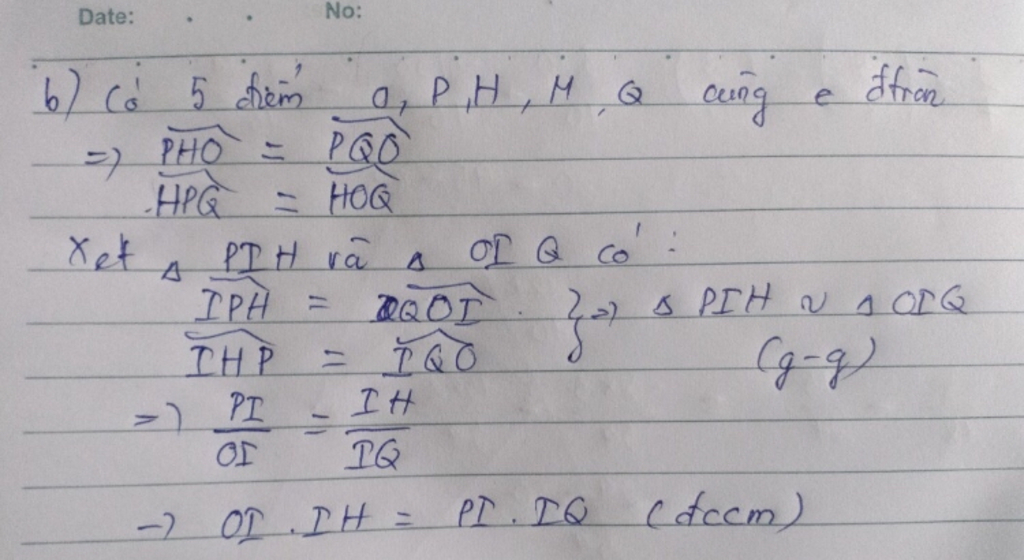 Date: . . No:
b) Có 5 điểm O, P, H, M, Q cùng ∈ đtròn
=> \widehat{PHO} = \widehat{PQO}
\widehat{HPQ} = \widehat{HOQ}
Xét Δ PIH và Δ OIQ có :
\widehat{IPH} = \widehat{QOI} . } => Δ PIH ~ Δ OIQ
\widehat{IHP} = \widehat{IQO} (g-g)
=> PI/OI = IH/IQ
-> OI . IH = PI . IQ (đccm)